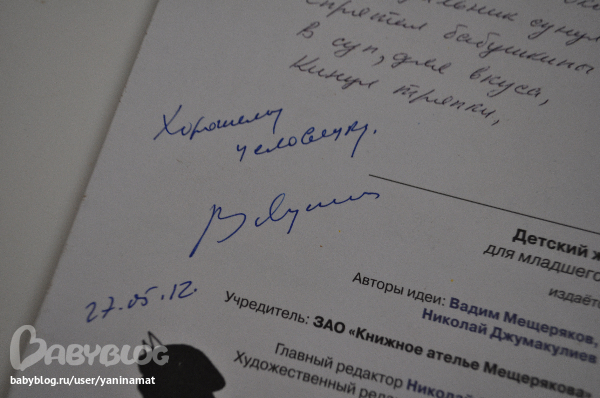 сунул
спрятал бабушкины
в суп, для вкуса,
Кинул тряпки,
Хорошему
человеку.
27.05.12.
Детский
для младшего
издаётс
Авторы идеи: Вадим Мещеряков,
Николай Джумакулиев
Учредитель: ЗАО «Книжное ателье Мещерякова»
Главный редактор Николай
Художественный реда
BABYBLOG
babyblog.ru/user/yaninamat